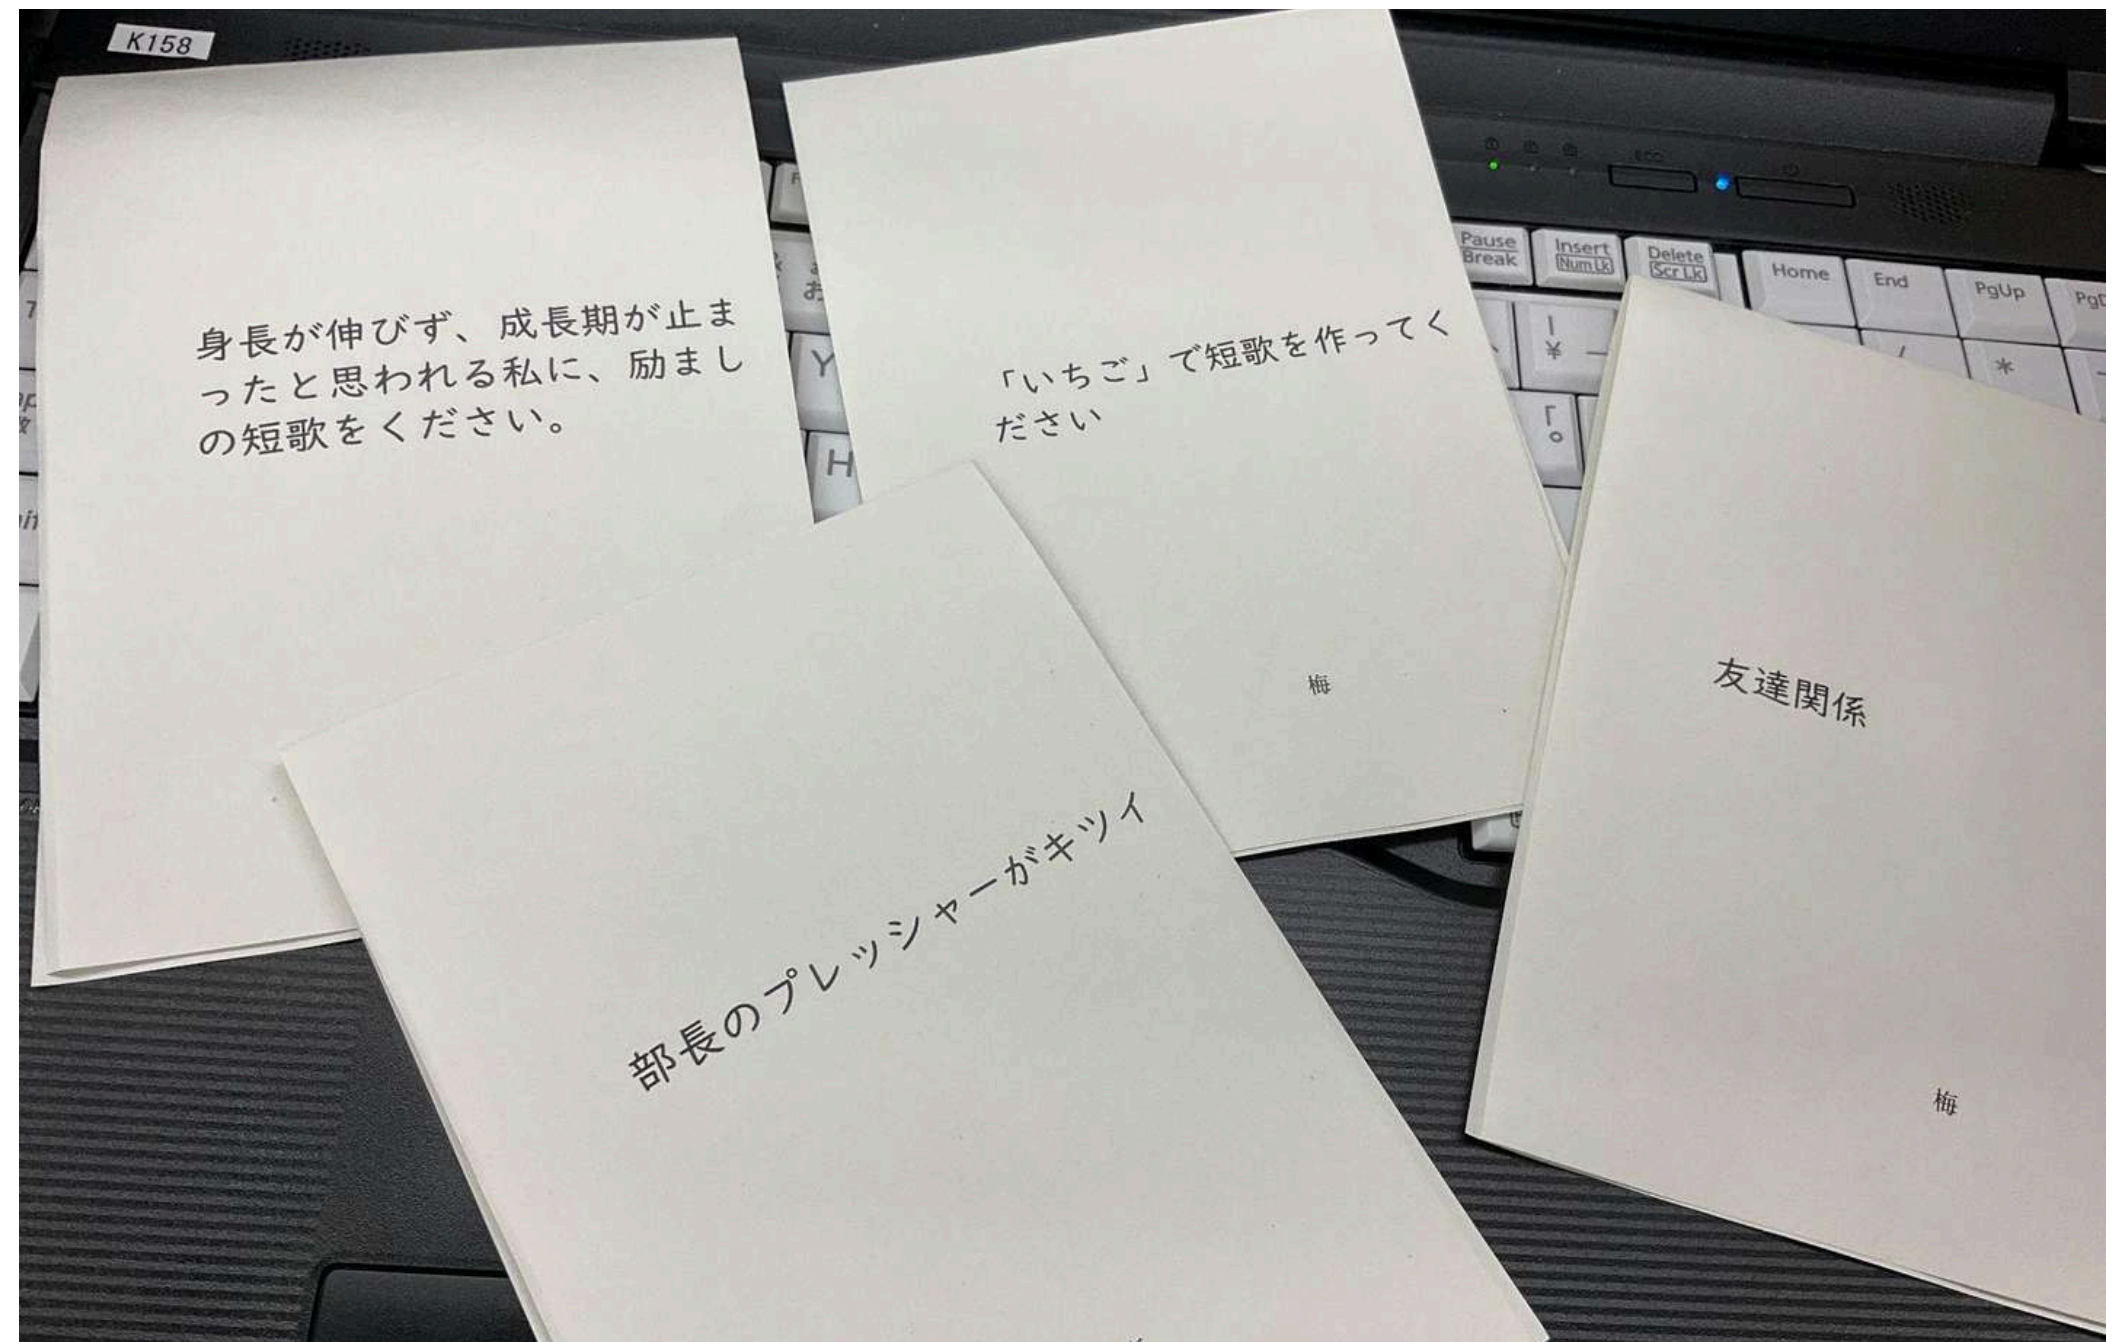 K158
身長が伸びず、成長期が止ま
ったと思われる私に、励まし
の短歌をください。
「いちご」で短歌を作ってく
ださい
梅
部長のプレッシャーがキツイ
友達関係
梅
ECO
Pause
Break
Insert
Num Lk
Delete
Scr Lk
Home
End
PgUp
Y
H
¥
*